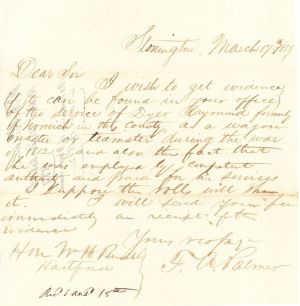 Stonington, March 17th 1859
Dear Sir
I wish to get evidence
if it can be found in your office
of the service of Dyer Raymond formerly
of Norwich in this county, as a wagon
master or teamster during the war
of 1812 and also the fact that
he was employed by competent
authority and paid for his services
I suppose the rolls will show
it. I will send your fee
immediately on receipt of the
evidence
Yours resp'y
Hon Wm H
F. A. Palmer
Hartford
18th